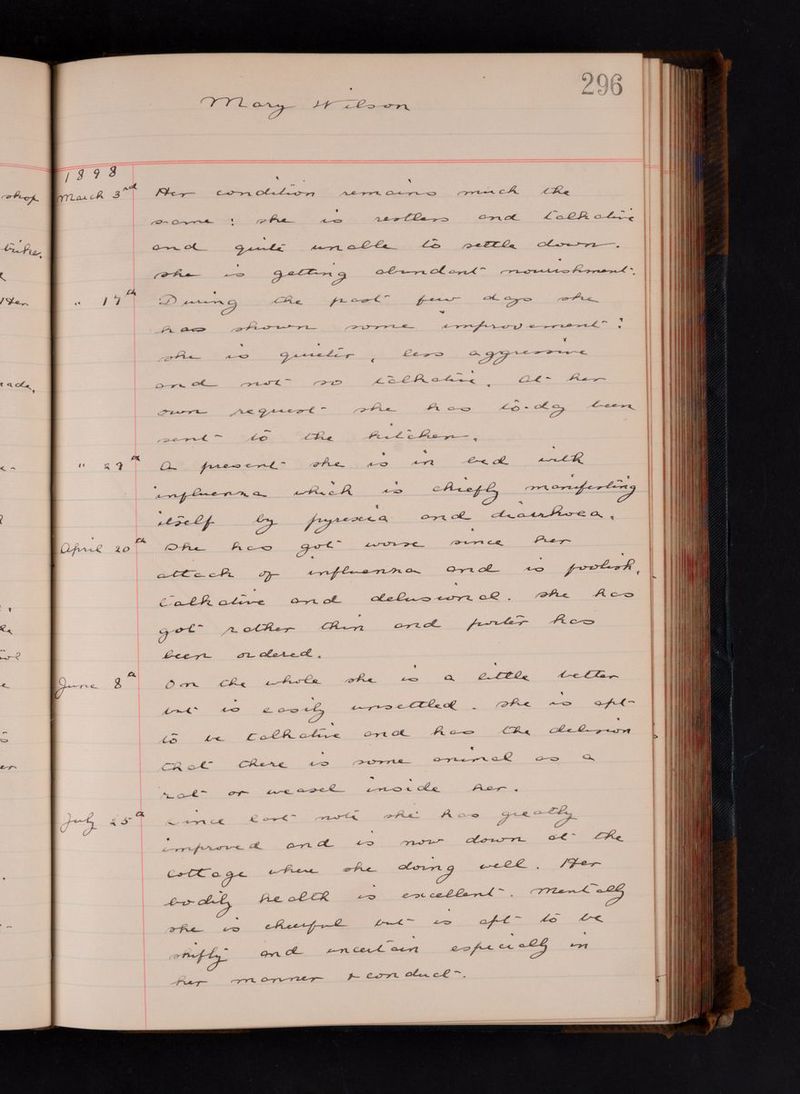 296
Mary Wilson
1898
March 3rd Her condition remains much the
same : she is restless and talkative
and quite unable to settle down.
she is getting abundant nourishment.
" 17th During the past few days she
has shown some improvement :
she is quieter, less aggressive
and not so talkative. At her
own request she has to-day been
sent to the kitchen.
" 29th At present she is in bed with
influenza which is chiefly manifesting
itself by pyrexia and diarrhoea.
April 20th She has got worse since her
attack of influenza and is foolish,
talkative and delusional. she has
got rather thin and porter has
been ordered.
June 8th On the whole she is a little better
but is easily unsettled. she is apt
to be talkative and has the delusion
that there is some animal as a
rat or weasel inside her.
July 25th since last note she has greatly
improved and is now down at the
cottage where she doing well. Her
bodily health is excellent. mentally
she is cheerful but is apt to be
shifty and uncertain especially in
her manner & conduct.
shop
Her